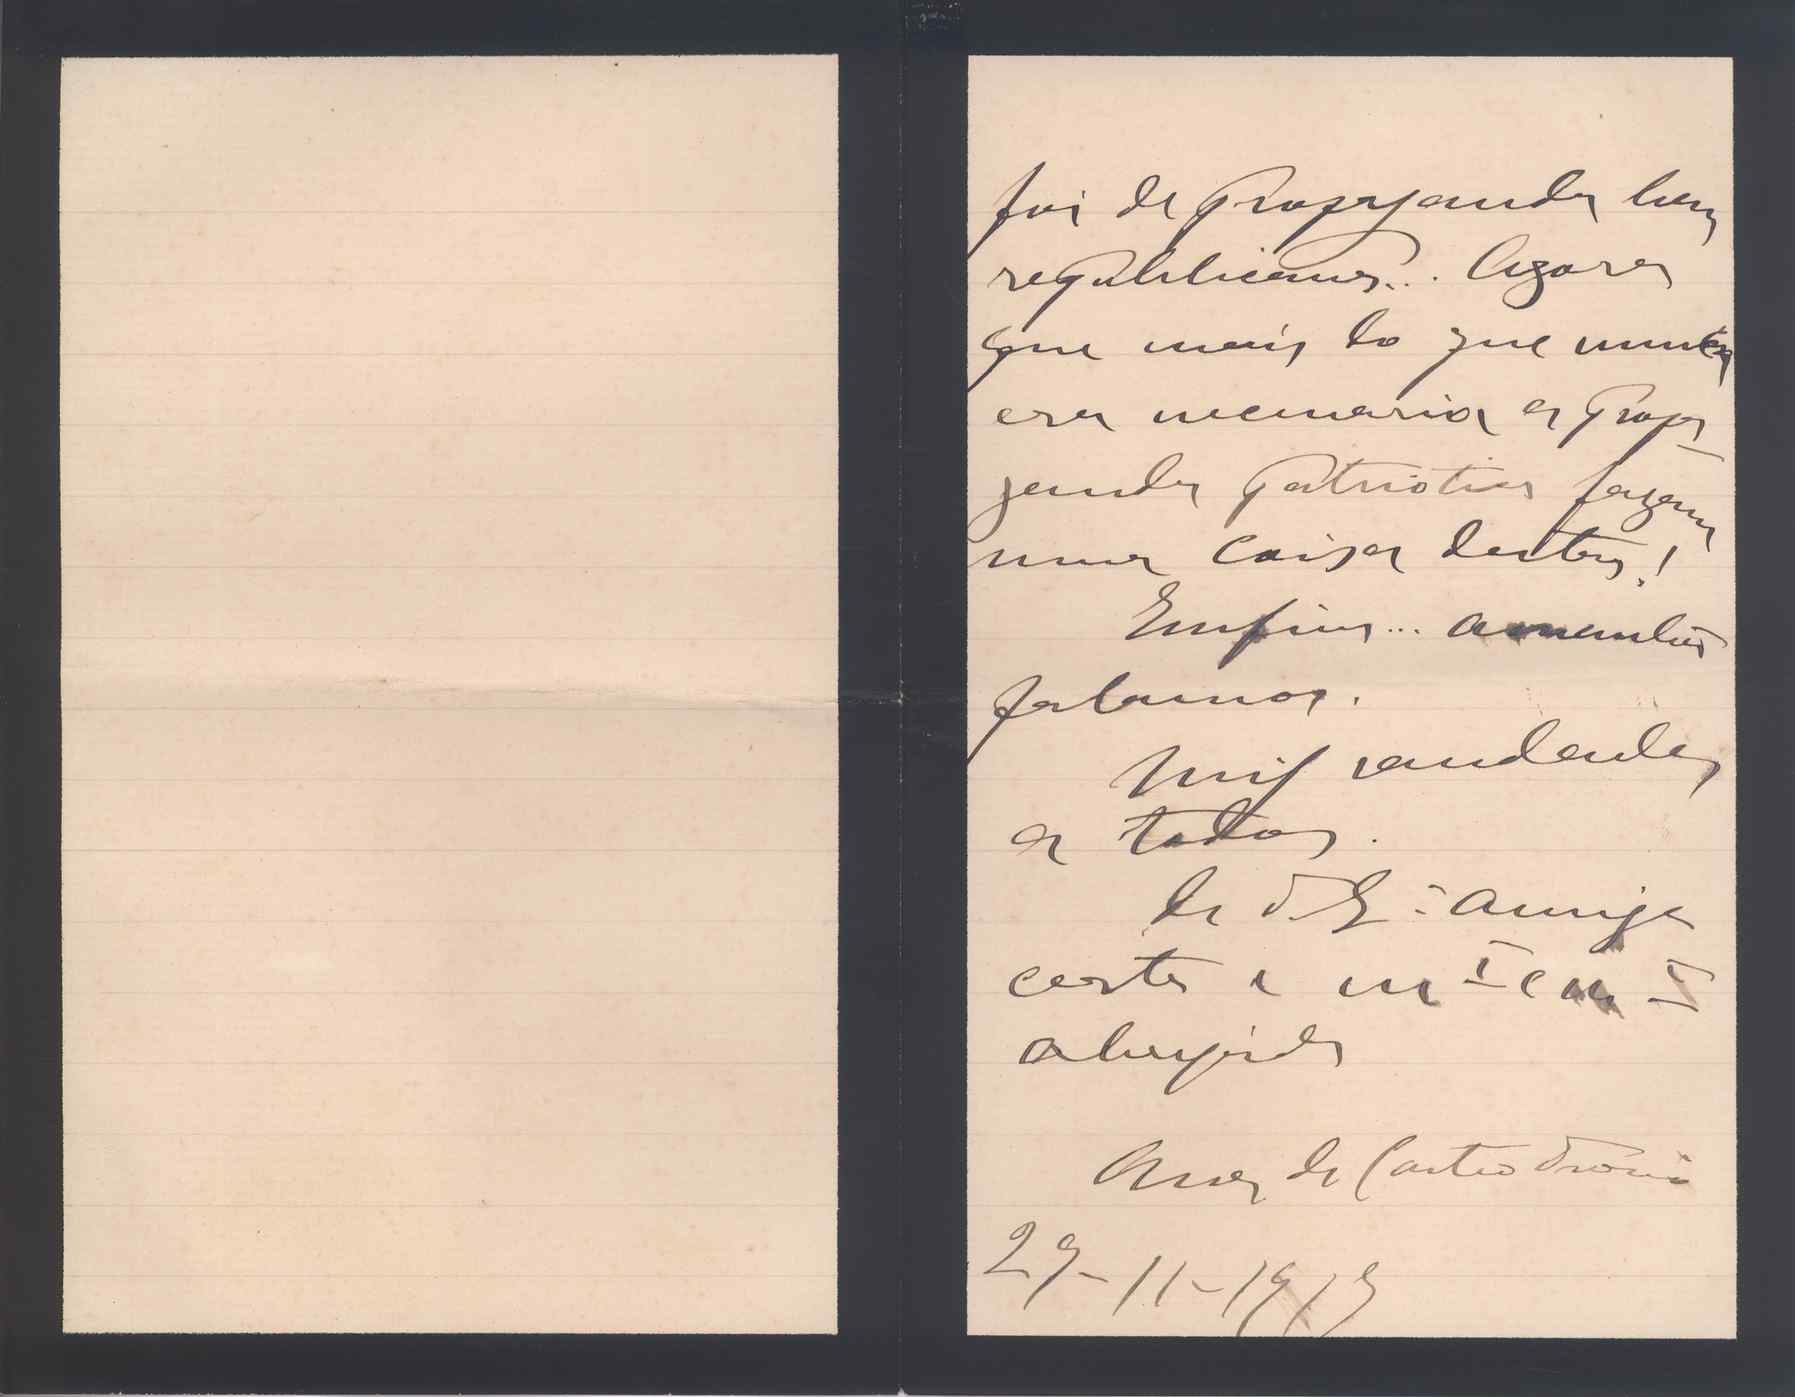 foi de propaganda bem
republicana... Agora
que mais do que nunca
era necessaria a propa-
ganda patriotica fazem
uma coisa destas!
Emfim... amanhã
falamos.
Mil saudades
a todos.
De V. Ex.ª amiga
certa e m.to e m.to
obrigada
Ana de Castro Osorio
29-11-1919